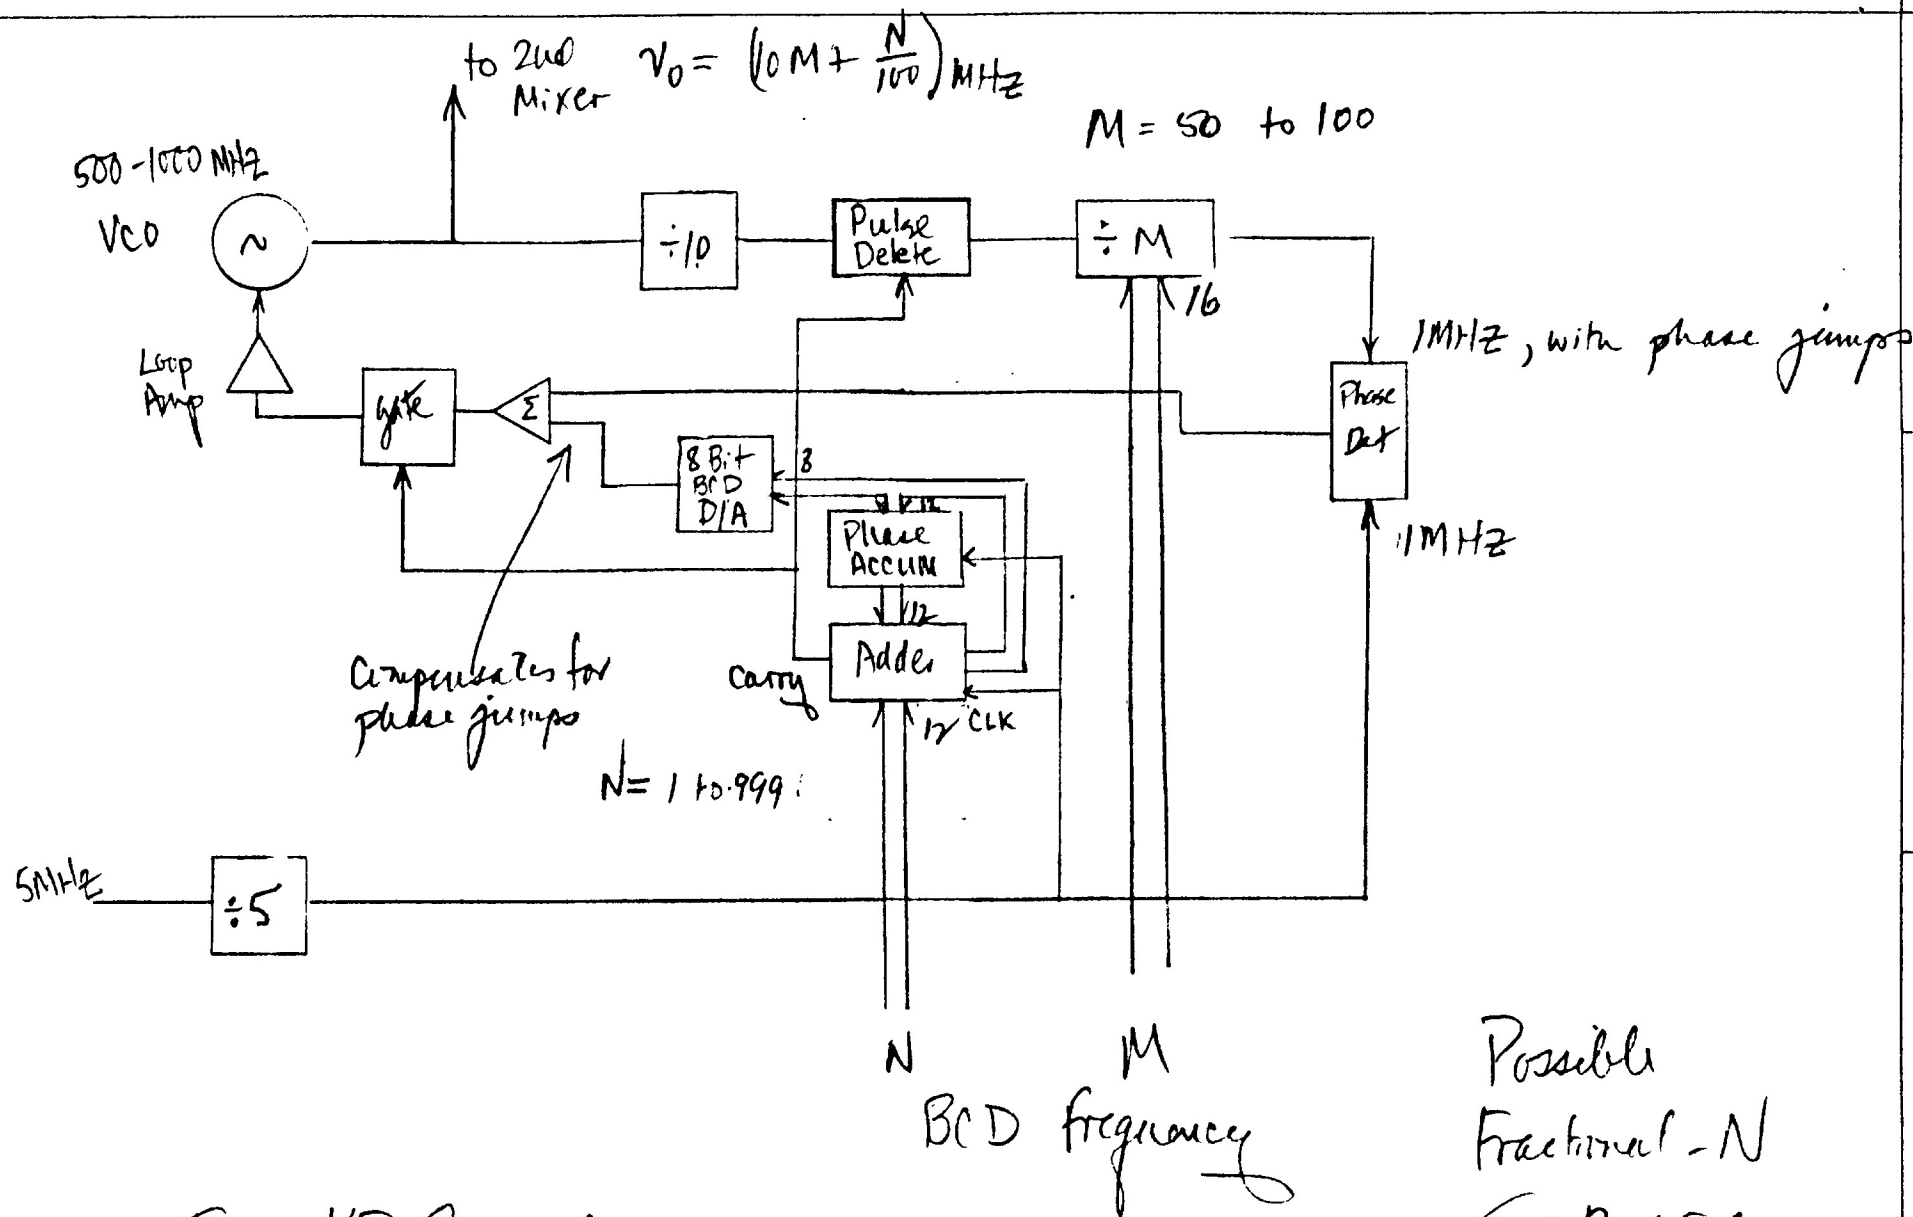 to 2nd
Mixer
ν₀ = (10M + N/100) MHz
M = 50 to 100
500-1000 MHz
VCO
~
÷10
Pulse
Delete
÷ M
16
1MHz, with phase jumps
Loop
Amp
gate
Σ
8 Bit
BCD
D/A
8
12
Phase
Det
Phase
ACCUM
1MHz
12
Adder
Carry
12 CLK
Compensates for
phase jumps
N = 1 to 999
5MHz
÷5
N M
BCD frequency
Possible
Fractional-N